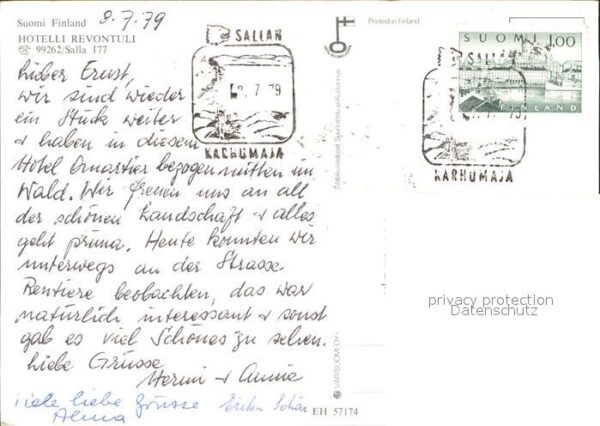 Suomi Finland
8.7.79
HOTELLI REVONTULI
☎ 99262/Salla 177
Lieber Ernst,
wir sind wieder
ein Stück weiter
+ haben in diesem
Hotel Quartier bezogen mitten im
Wald. Wir freuen uns an all
der schönen Landschaft + alles
geht prima. Heute konnten wir
unterwegs an der Strasse
Rentiere beobachten, das war
natürlich interessant + sonst
gab es viel Schönes zu sehen.
Liebe Grüsse
Hermi + Annie
Viele liebe Grüsse Erika
Alma
EH 57174
Printed in Finland
SALLAN
7 79
KARHUMAJA
VARISLOM OY
SUOMI 1.00
FINLAND
SALLAN
79
KARHUMAJA
privacy protection
Datenschutz